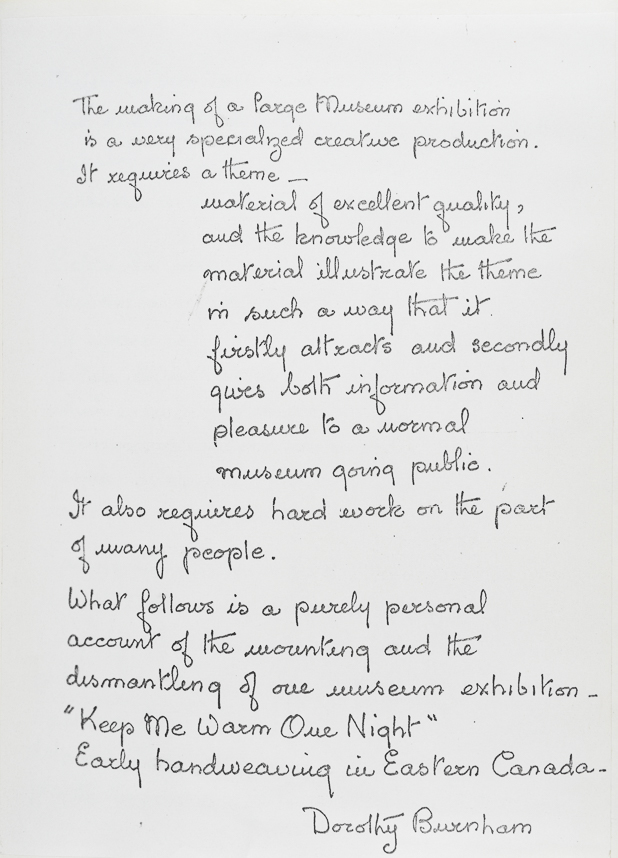 The making of a Large Museum exhibition
is a very specialized creative production.
It requires a theme —
material of excellent quality,
and the knowledge to make the
material illustrate the theme
in such a way that it
firstly attracts and secondly
gives both information and
pleasure to a normal
museum going public.
It also requires hard work on the part
of many people.
What follows is a purely personal
account of the mounting and the
dismantling of one museum exhibition -
"Keep Me Warm One Night"
Early handweaving in Eastern Canada -
Dorothy Burnham